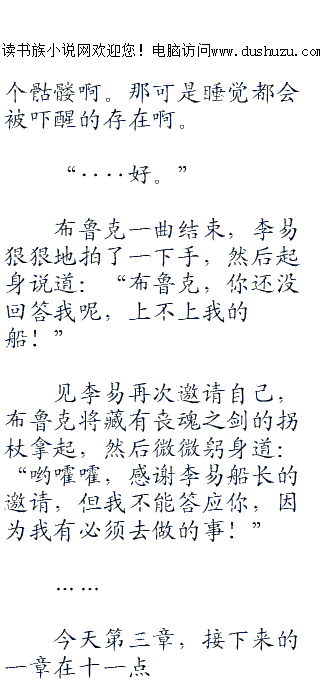 读书族小说网欢迎您！电脑访问www.dushuzu.com
个骷髅啊。那可是睡觉都会
被吓醒的存在啊。
“····好。”
布鲁克一曲结束，李易
狠狠地拍了一下手，然后起
身说道：“布鲁克，你还没
回答我呢，上不上我的
船！”
见李易再次邀请自己，
布鲁克将藏有丧魂之剑的拐
杖拿起，然后微微躬身道：
“哟嚯嚯，感谢李易船长的
邀请，但我不能答应你，因
为我有必须去做的事！”
……
今天第三章，接下来的
一章在十一点